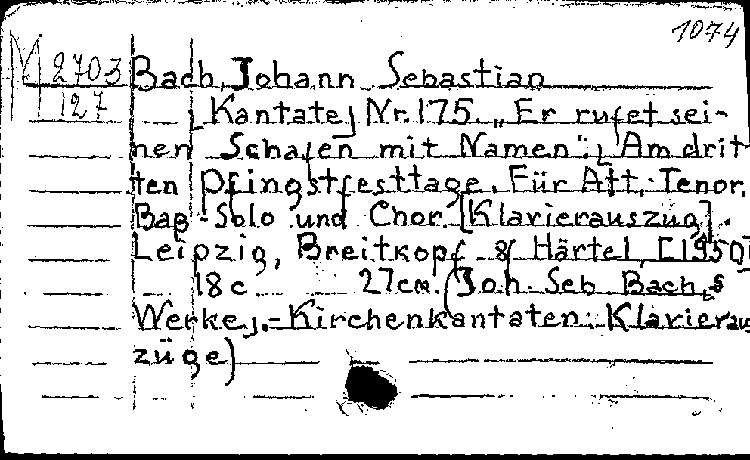 1074
M 2703 Bach, Johann Sebastian
127 [Kantate] Nr. 175. „Er rufet sei-
nen Schafen mit Namen". [Am drit-
ten Pfingstfesttage. Für Alt, Tenor,
Baß-Solo und Chor. [Klavierauszug].
Leipzig, Breitkopf & Härtel [1950]
18 c 27cm. (Joh. Seb. Bach,s
Werke,.-Kirchenkantaten: Klavieraus
züge)